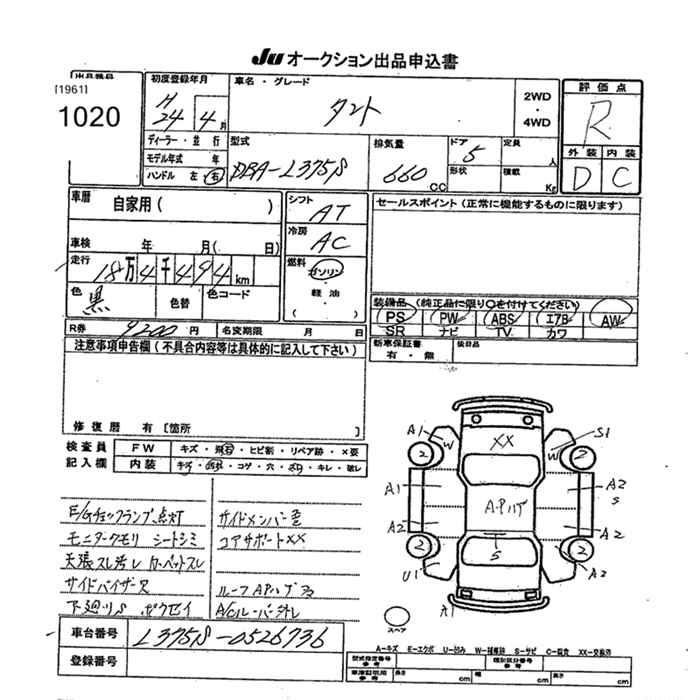 Ju オークション出品申込書
出品番号
[1961]
1020
初度登録年月
H 24 4月
車名・グレード
タント
2WD
・
4WD
評価点
R
外装 内装
D C
ディーラー・並行
モデル年式 年
ハンドル 左・右
型式
DBA-L375S
排気量
660 CC
ドア
5
形状
定員
人
積載
Kg
車歴
自家用( )
車検 年 月( 日)
走行
18万4千494km
色
黒
色替
色コード
シフト
AT
冷房
AC
燃料
ガソリン
・
軽油
( )
セールスポイント(正常に機能するものに限ります)
装備品(純正品に限り〇を付けてください)
PS PW ABS エアB AW
SR ナビ TV カワ
新車保証書
有・無
後日品
R券 9200円
名変期限 月 日
注意事項申告欄(不具合内容等は具体的に記入して下さい)
修復歴 有[箇所
検査員
記入欄
FW キズ・飛石・ヒビ割・リペア跡・×要
内装 キズ・汚れ・コゲ・穴・ヌレ・キレ・破レ
E/Gチェックランプ点灯
モニタークモリ シートシミ
天張スレ汚レ カーペットスレ
サイドバイザーヌ
下廻りS
サイドメンバー歪
コアサポートXX
ルーフAPハゲ
A/Cルーバー外レ
A1 W XX W S1
2 2
A1 A2
S
A.Pハゲ
A2 A2
2 2
S
U1 A2
A1
スペア
車台番号 L375S-0526736
登録番号
A-キズ E-エクボ U-凹み W-補修跡 S-サビ C-腐食 XX-交換済
型式指定番号
類別区分番号
車庫証明用
参考寸法
長さ cm 幅 cm 高さ cm